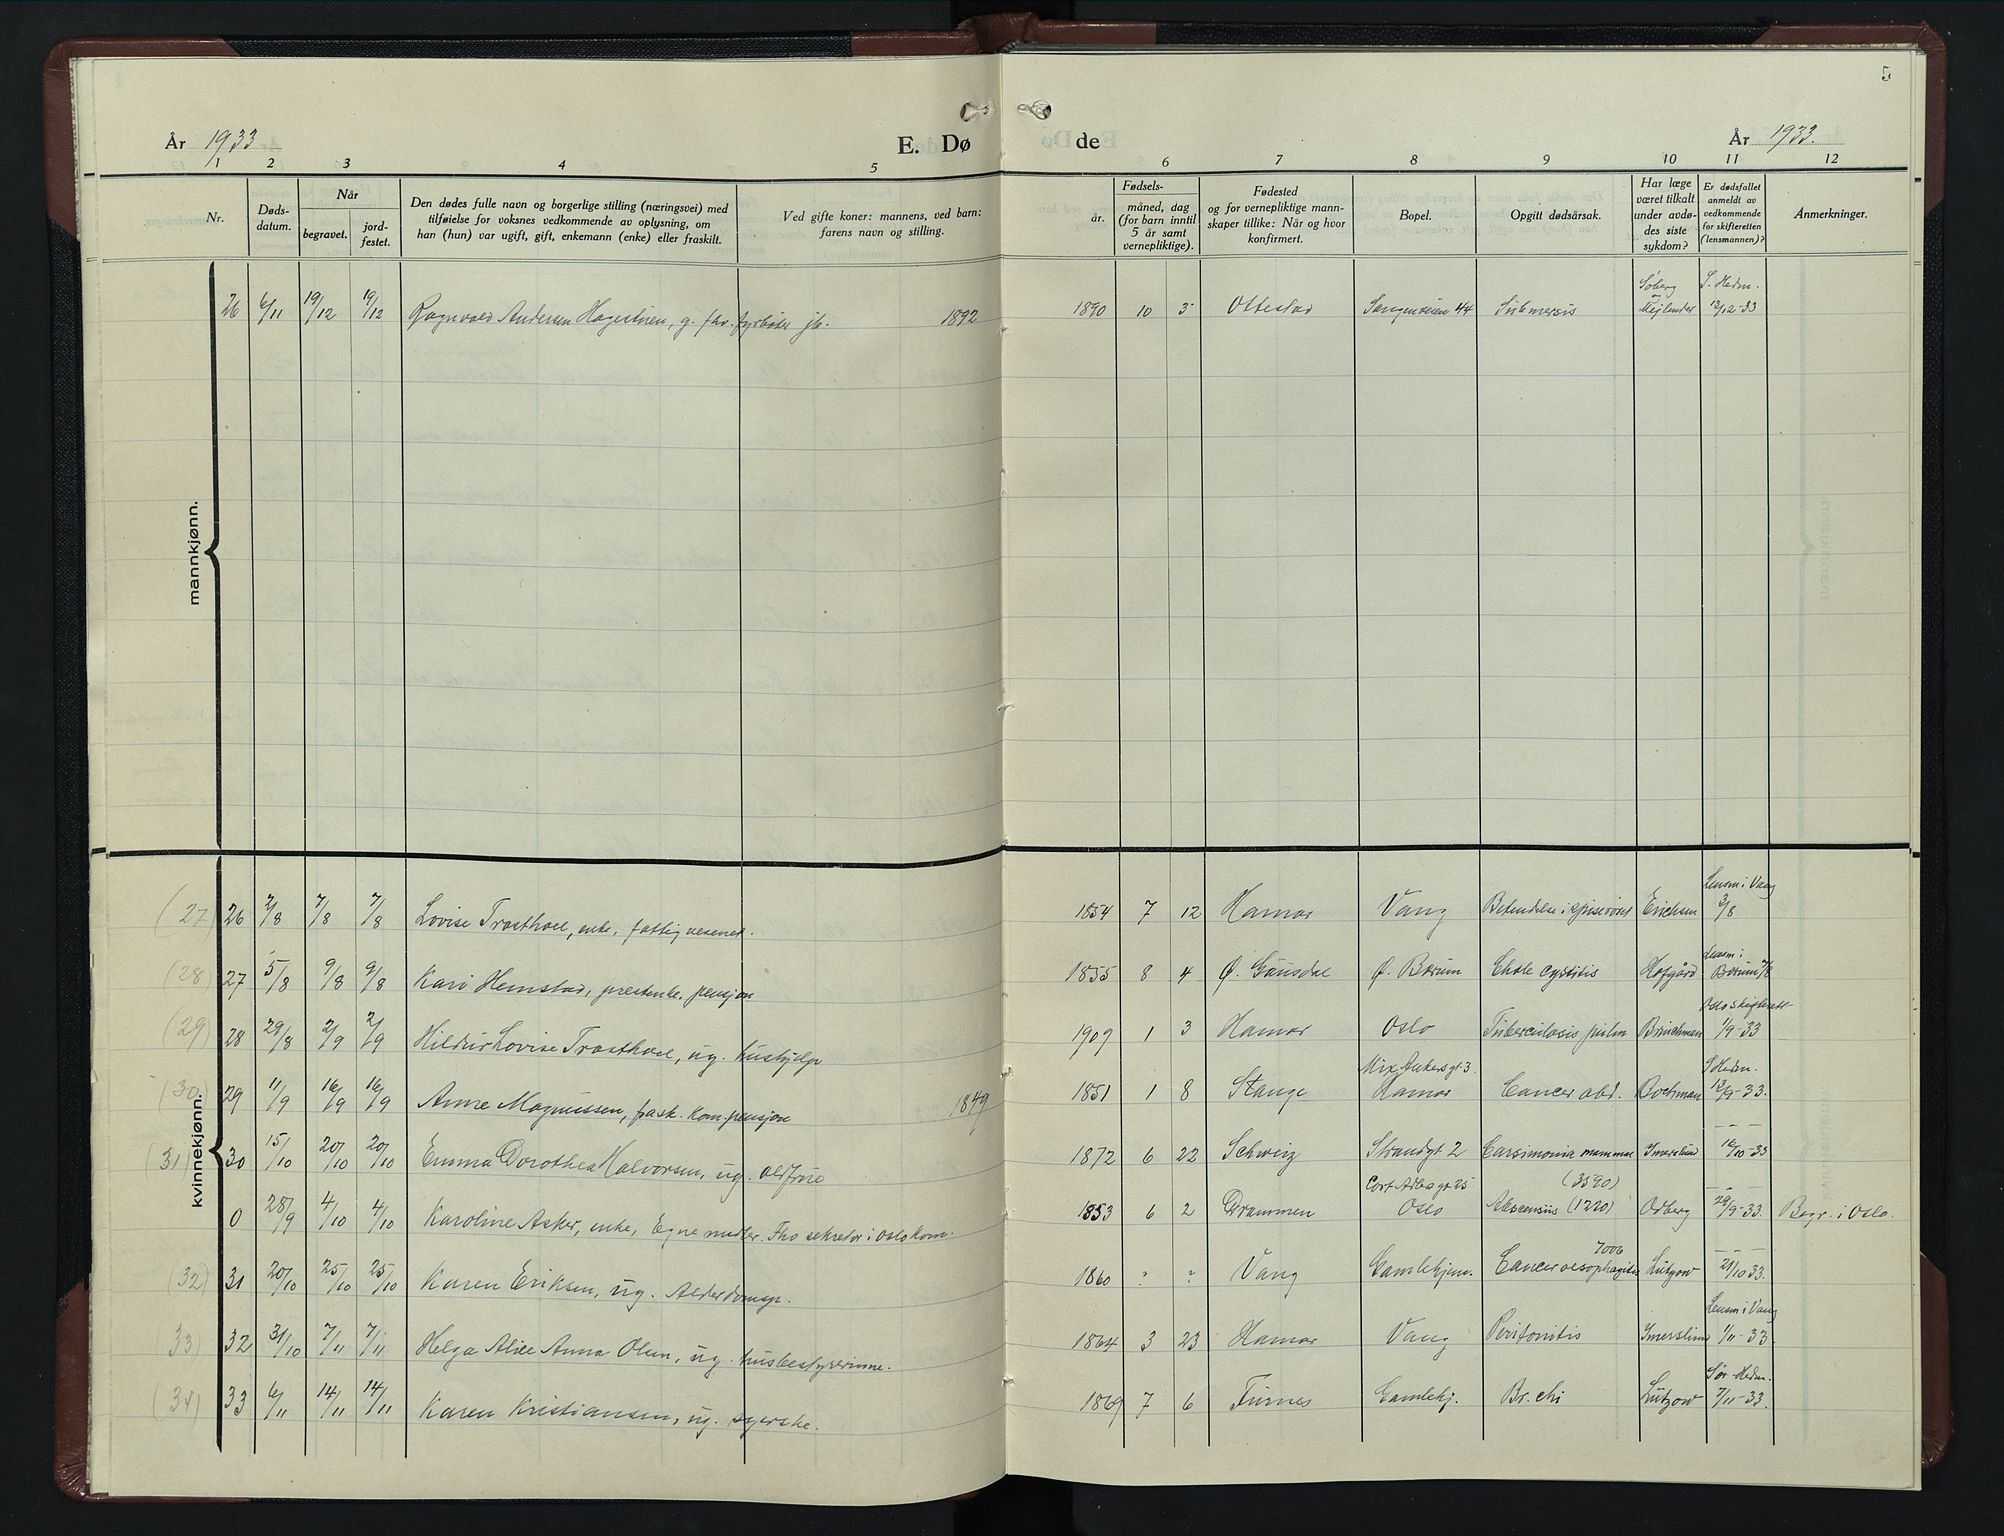 5
År 1933
E. Dø de
År 1933.
1 2 3 4 5 6 7 8 9 10 11 12
Nr.
Døds-
datum.
Når
begravet.
jord-
festet.
Den dødes fulle navn og borgerlige stilling (næringsvei) med
tilføielse for voksnes vedkommende av oplysning, om
han (hun) var ugift, gift, enkemann (enke) eller fraskilt.
Ved gifte koner: mannens, ved barn:
farens navn og stilling.
Fødsels-
år.
måned, dag
(for barn inntil
5 år samt
vernepliktige).
Fødested
og for vernepliktige mann-
skaper tillike: Når og hvor
konfirmert.
Bopel.
Opgitt dødsårsak.
Har læge
været tilkalt
under avdø-
des siste
sykdom?
Er dødsfallet
anmeldt av
vedkommende
for skifteretten
(lensmannen)?
Anmerkninger.
mannkjønn.
Søberg S. Hedm.
26 6/11 19/12 19/12 Ragnvald Andersen Hagestuen, g. fhv. fyrbøter jb. 1892 1890 10 3 Ottestad Sangenveien 44 Submersis Mejlender 13/12-33
kvinnekjønn.
Lensm i Vang
(27) 26 2/8 7/8 7/8 Lovise Trosthoel, enke, fattigvesenet. 1854 7 12 Hamar Vang Betendelse i spiserøret Erichsen 3/8
Lensm i
(28) 27 5/8 9/8 9/8 Kari Hemstad, prestenke. pensjon 1855 8 4 Ø. Gausdal Ø. Bærum Chole cystitis Hofgård Bærum 7/8
Oslo skifterett
(29) 28 29/8 2/9 2/9 Hildur Lovise Trosthoel, ug. hushjelp 1909 1 3 Hamar Oslo Tuberculosis pulm Brinchman 1/9-33
Mix Ankersgt. 3. S Hedm.
(30) 29 11/9 16/9 16/9 Anne Magnussen, frask. kom. pensjon 1849 1851 1 8 Stange Hamar Cancer abd. Bochman 12/9-33.
(31) 30 15/10 20/10 20/10 Emma Dorothea Halvorsen, ug. oldfrue 1872 6 22 Schweiz Strandgt 2 Carsimonia mammae Imerslund 16/10-33
Cort Adlersgt 25 (3590)
0 28/9 4/10 4/10 Karoline Asker, enke, Egne midler. Fho sekretær i Oslo kom. 1853 6 2 Drammen Oslo (1220) Odberg 29/9-33. Begr. i Oslo.
7006
(32) 31 20/10 25/10 25/10 Karen Eriksen, ug. Alderdomsp. 1860 ? ? Vang Gamlehjem. Cancer oesophagitis Lützow 21/10 33.
Lensm i Vang
(33) 32 31/10 7/11 7/11 Helga Alice Anna Olsen, ug. husbestyrerinne. 1864 3 23 Hamar Vang Peritonitis Imerslund 1/11-33
Sør-Hedm.
(34) 33 6/11 14/11 14/11 Karen Kristiansen, ug. syerske. 1869 7 6 Furnes Gamlehj. Br. chi Lützow 7/11-33.